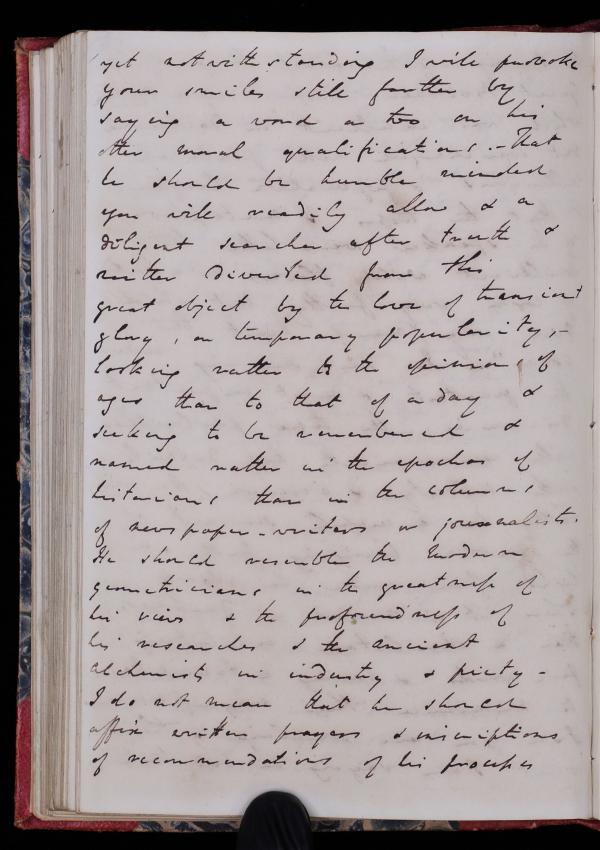 yet notwithstanding I will provoke
your smiles still further by
saying a word or two on his
other moral qualifications. - That
he should be humble minded
you will readily allow & a
diligent searcher after truth &
neither diverted from this
great object by the love of transient
glory, or temporary popularity, -
looking rather to the opinion of
ages than to that of a day &
seeking to be remembered &
named rather in the epochas of
historians than in the columns
of newspaper-writers or journalists.
He should resemble the modern
geometricians in the greatness of
his views & the profoundness of
his researches & the ancient
alchemists in industry & piety -
I do not mean that he should
affix written prayers & inscriptions
of recommendations of his processes